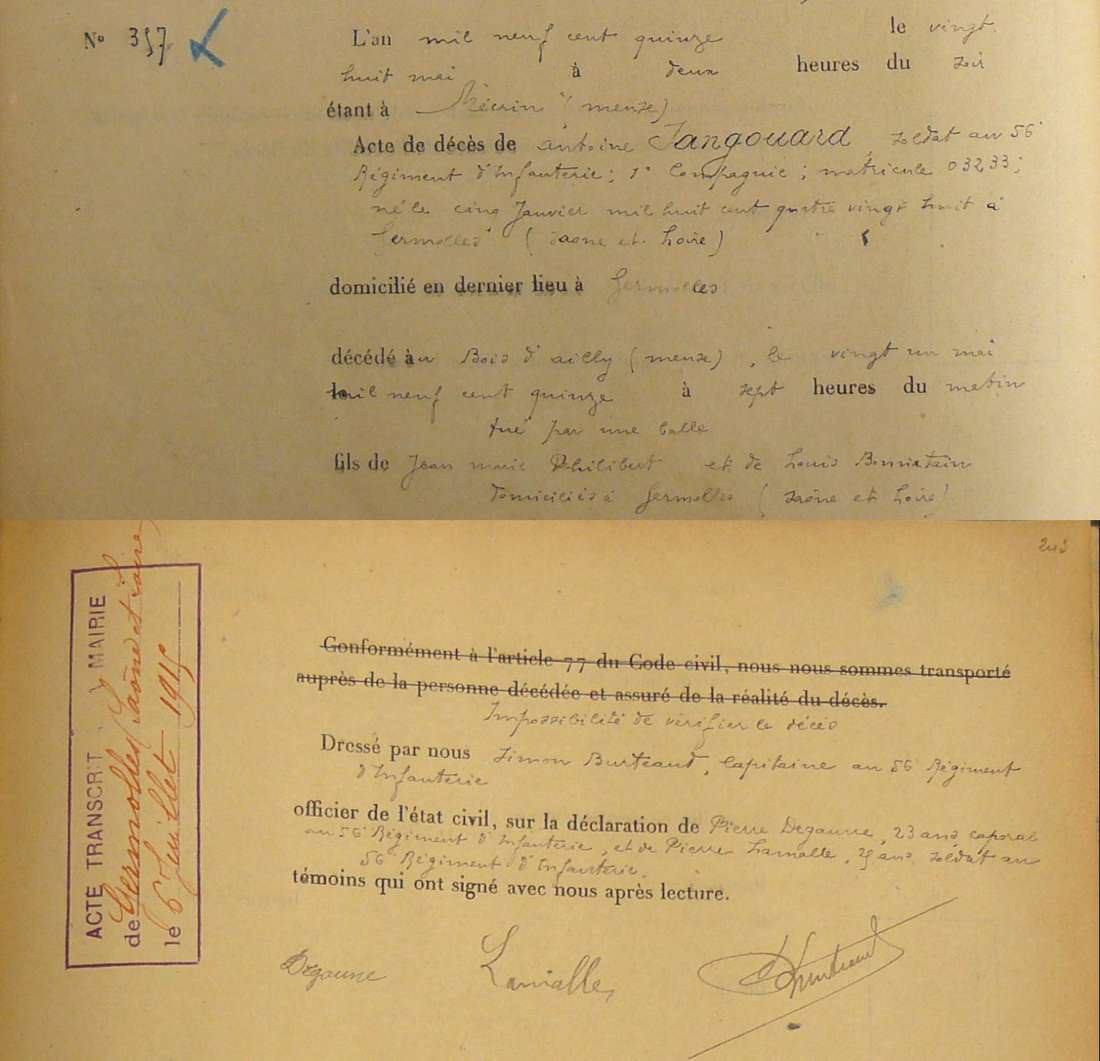 N° 357 L'an mil neuf cent quinze le vingt
huit mai à deux heures du soir
étant à Mécrin (meuse)
Acte de décès de antoine Sangouard, soldat au 56e
Régiment d'Infanterie; 1e Compagnie; matricule 03233;
né le cinq Janvier mil huit cent quatre vingt huit à
Germolles (Saone et Loire)
domicilié en dernier lieu à Germolles
décédé au Bois d'ailly (meuse), le vingt un mai
mil neuf cent quinze à sept heures du matin
tué par une balle
fils de Jean marie Philibert et de Louis
Domiciliés à Germolles (Saône et Loire)
243
ACTE TRANSCRIT MAIRIE
de Germolles Saône et Loire
le 6 Juillet 1915
Conformément à l'article 77 du Code civil, nous nous sommes transporté
auprès de la personne décédée et assuré de la réalité du décès.
Impossibilité de vérifier le décès
Dressé par nous Simon Burteaud, Capitaine au 56e Régiment
d'Infanterie
officier de l'état civil, sur la déclaration de Pierre Degaune, 23 ans, caporal
au 56e Régiment d'Infanterie, et de Pierre Lamalle, ans, soldat au
56e Régiment d'Infanterie.
témoins qui ont signé avec nous après lecture.
Degaune Lamalle Burteaud